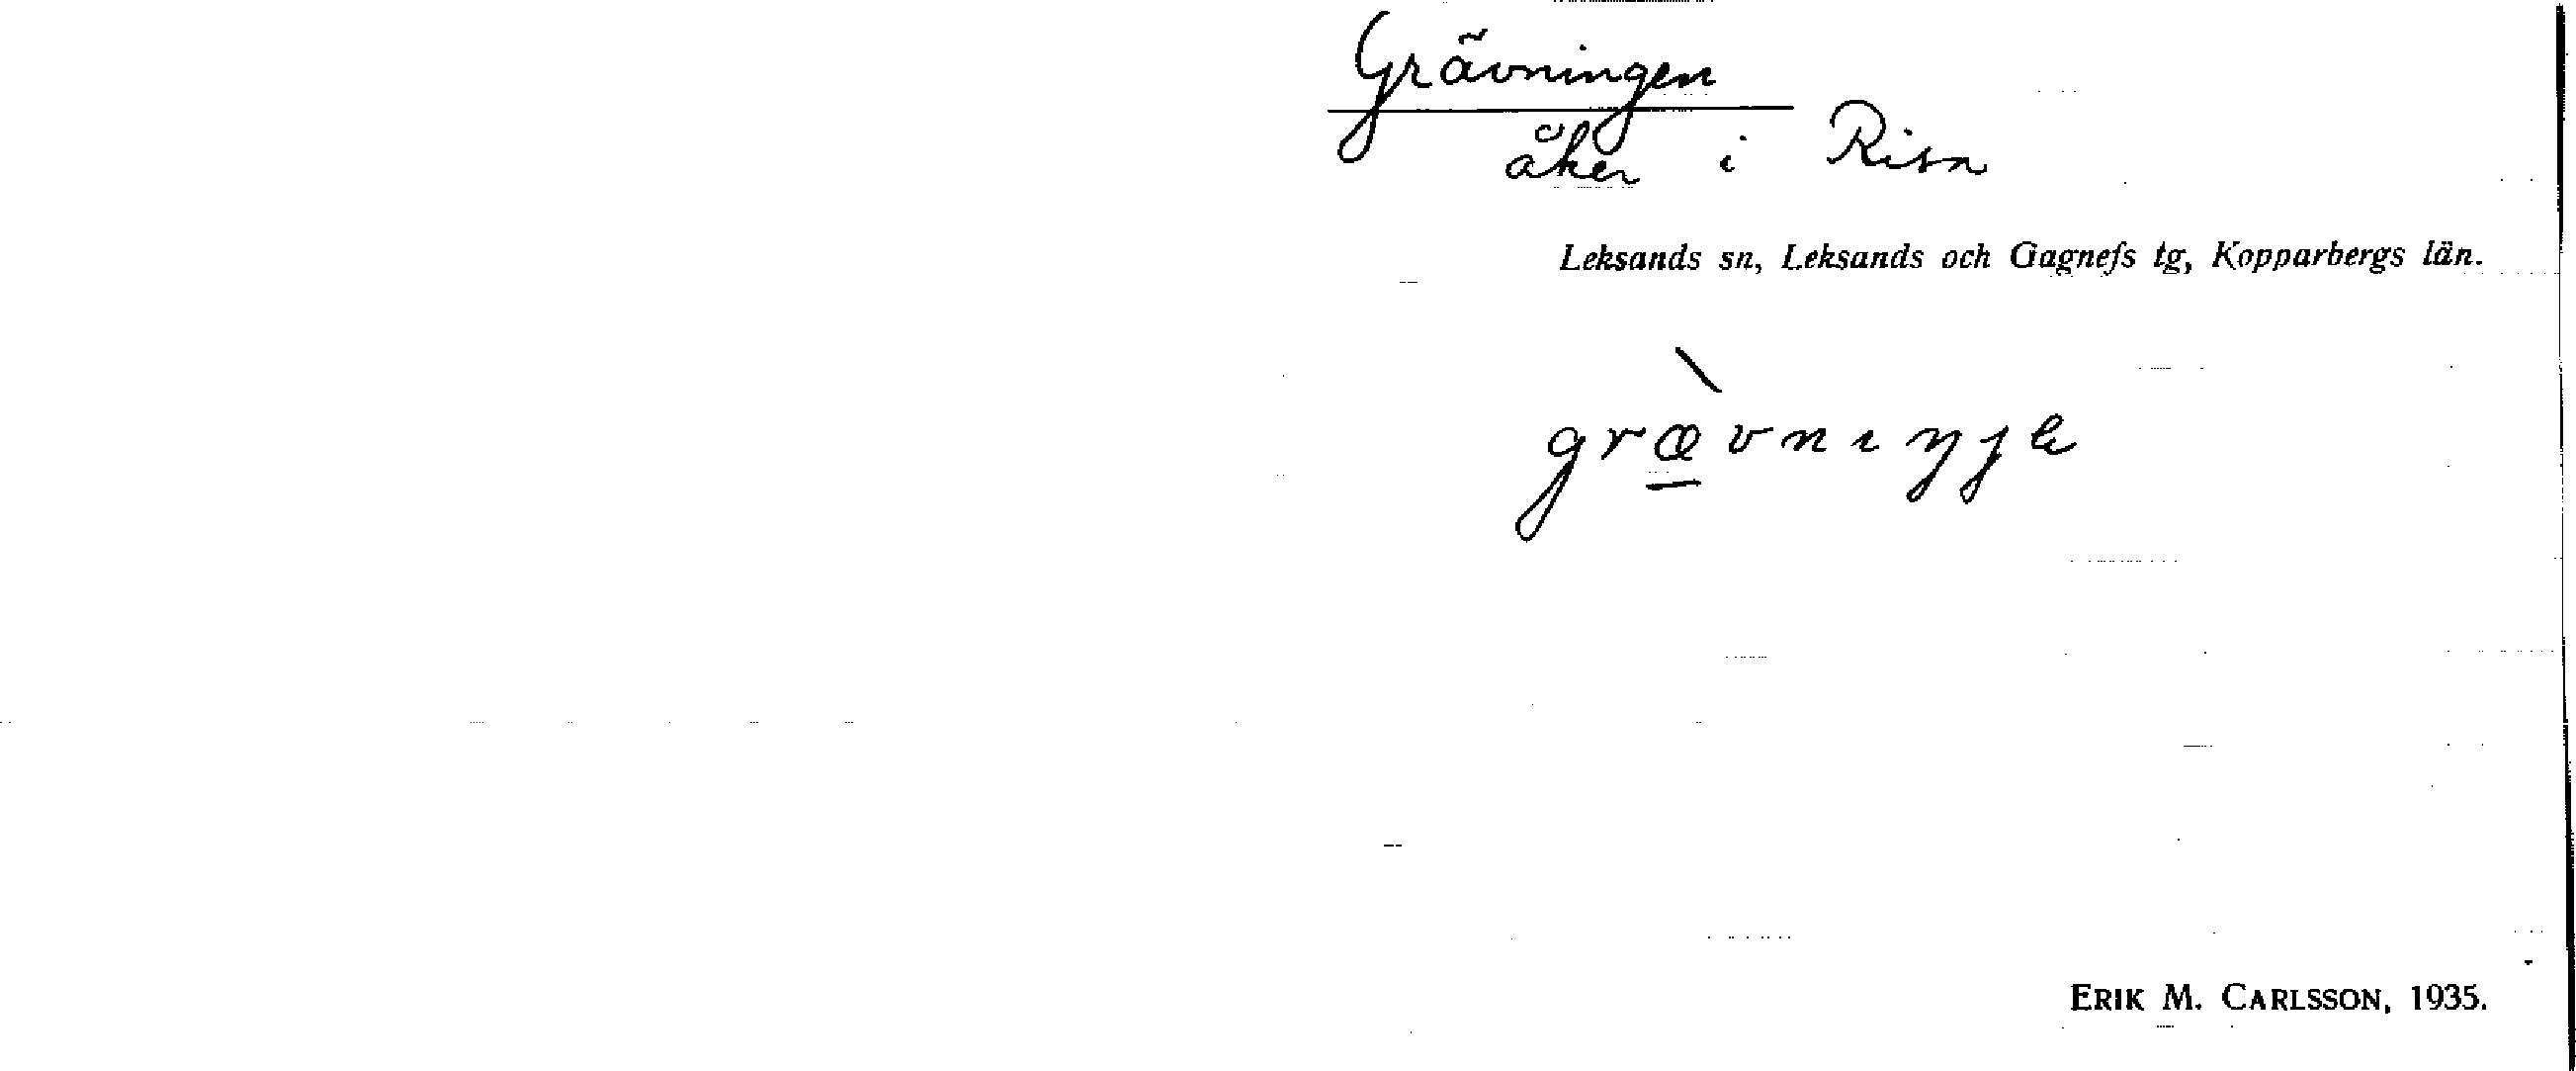 Grävningen
åker i Risa
Leksands sn, Leksands och Gagnefs tg, Kopparbergs län.
græ̱̀vnıŋɟe
ERIK M. CARLSSON, 1935.